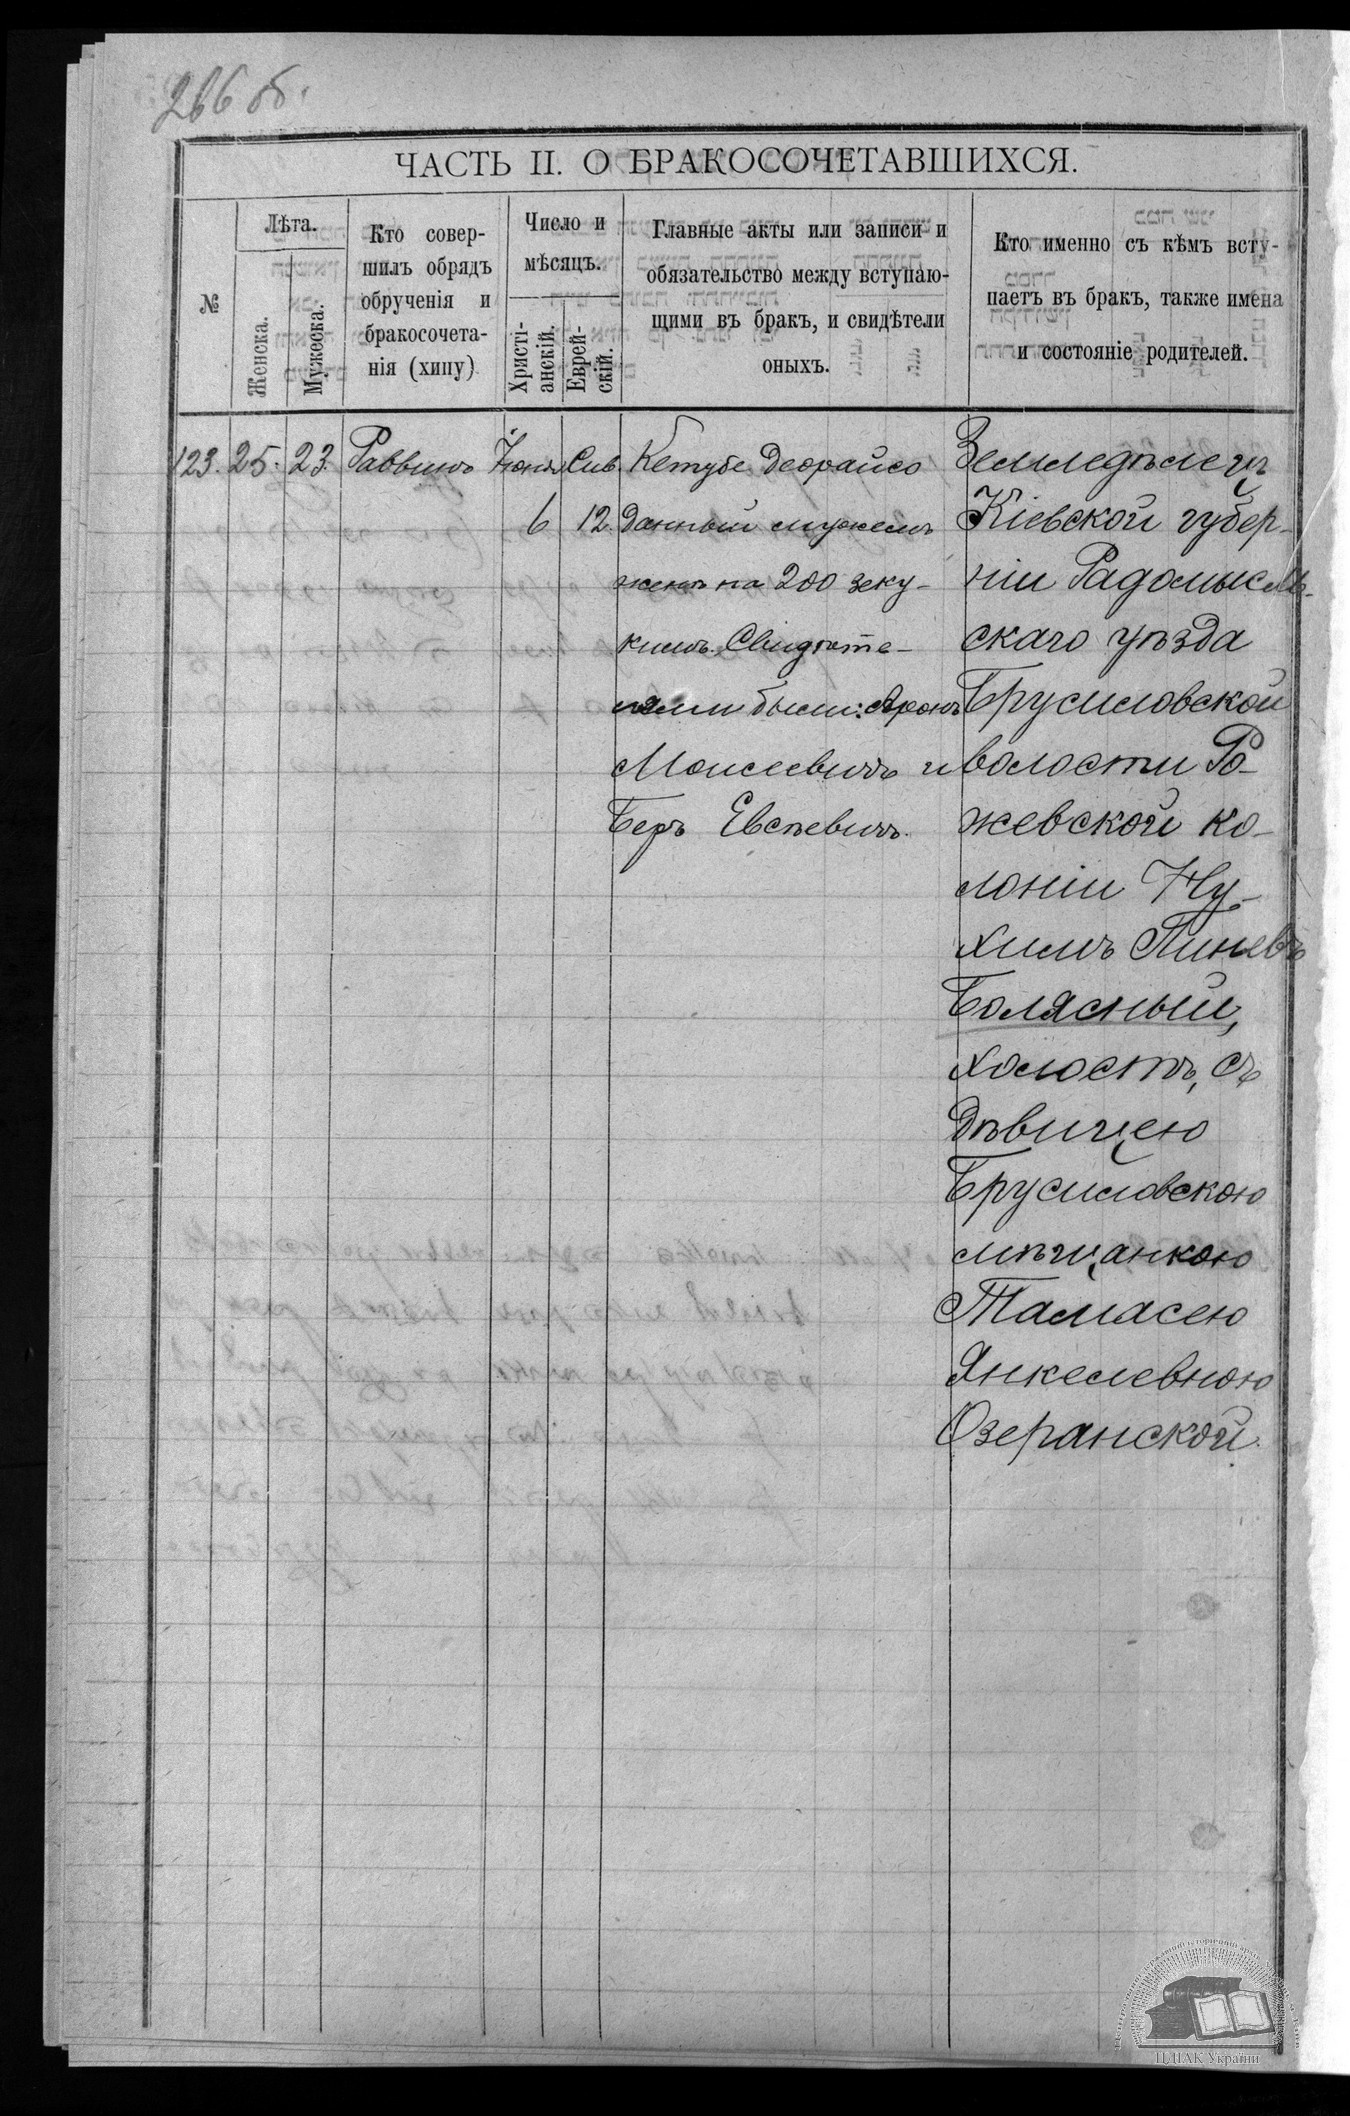 266 об.
ЧАСТЬ II. О БРАКОСОЧЕТАВШИХСЯ.
№
Лѣта.
Женска.
Мужеска.
Кто совер-
шилъ обрядъ
обрученія и
бракосочета-
нія (хипу)
Число и
мѣсяцъ.
Христі-
анскій.
Еврей-
скій.
Главные акты или записи и
обязательство между вступаю-
щими въ бракъ, и свидѣтели
оныхъ.
Кто именно съ кѣмъ всту-
паетъ въ бракъ, также имена
и состояніе родителей.
123. 25. 23. Раввинъ Іюня Сив.
6 12.
Кетубе Деорайсо
данный мужемъ
женѣ на 200 зеку-
кимъ. Свидѣте-
лями были: Аронъ
Моисеевичъ и
Беръ Евсѣевичъ.
Земледѣлецъ
Кіевской губер-
ніи Радомысль-
скаго уѣзда
Брусиловской
волости Ро-
жевской ко-
лоніи Ну-
химъ Пиневъ
Болясный,
холостъ, съ
дѣвицею
Брусиловскою
мѣщанкою
Тамасею
Янкелевною
Озеранской.
ЦДІАК України